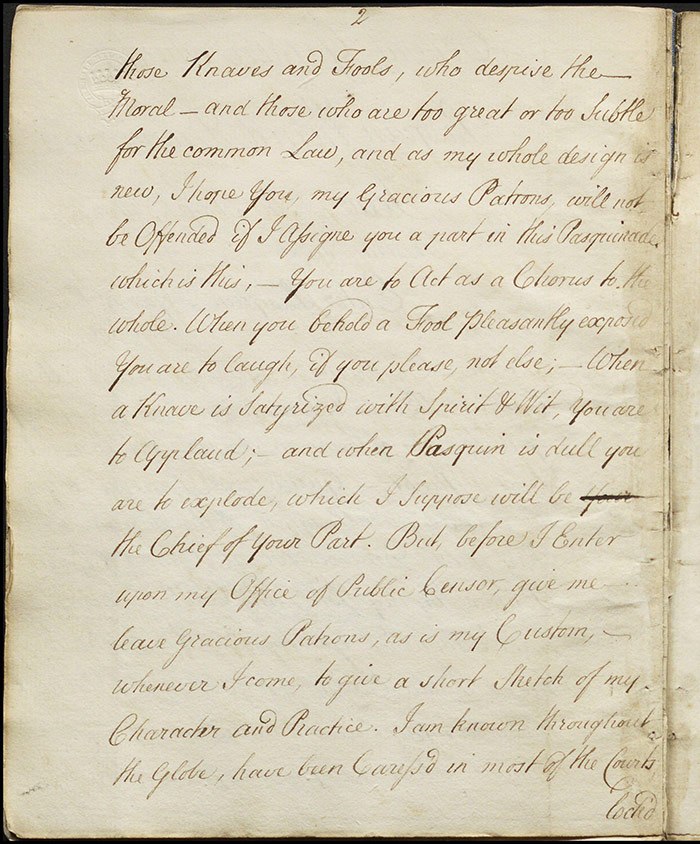 2
those Knaves and Fools, who despise the —
Moral — and those who are too great or too Subtle
for the common Law, and as my whole design is
new, I hope You, my Gracious Patrons, will not
be Offended if I Assigne you a part in this Pasquinade
which is this, — You are to Act as a Chorus to the
whole. When you behold a Fool pleasantly expos'd
You are to laugh, if you please, not else; — When
a Knave is Satyrized with Spirit & Wit, You are
to Applaud; — and when Pasquin is dull you
are to explode, which I Suppose will be your
the Chief of Your Part. But, before I Enter
upon my Office of Public Censor, give me —
leave Gracious Patrons, as is my Custom, —
whenever I come, to give a short Sketch of my
Character and Practice. I am known throughout
the Globe, have been Caress'd in most of the Courts